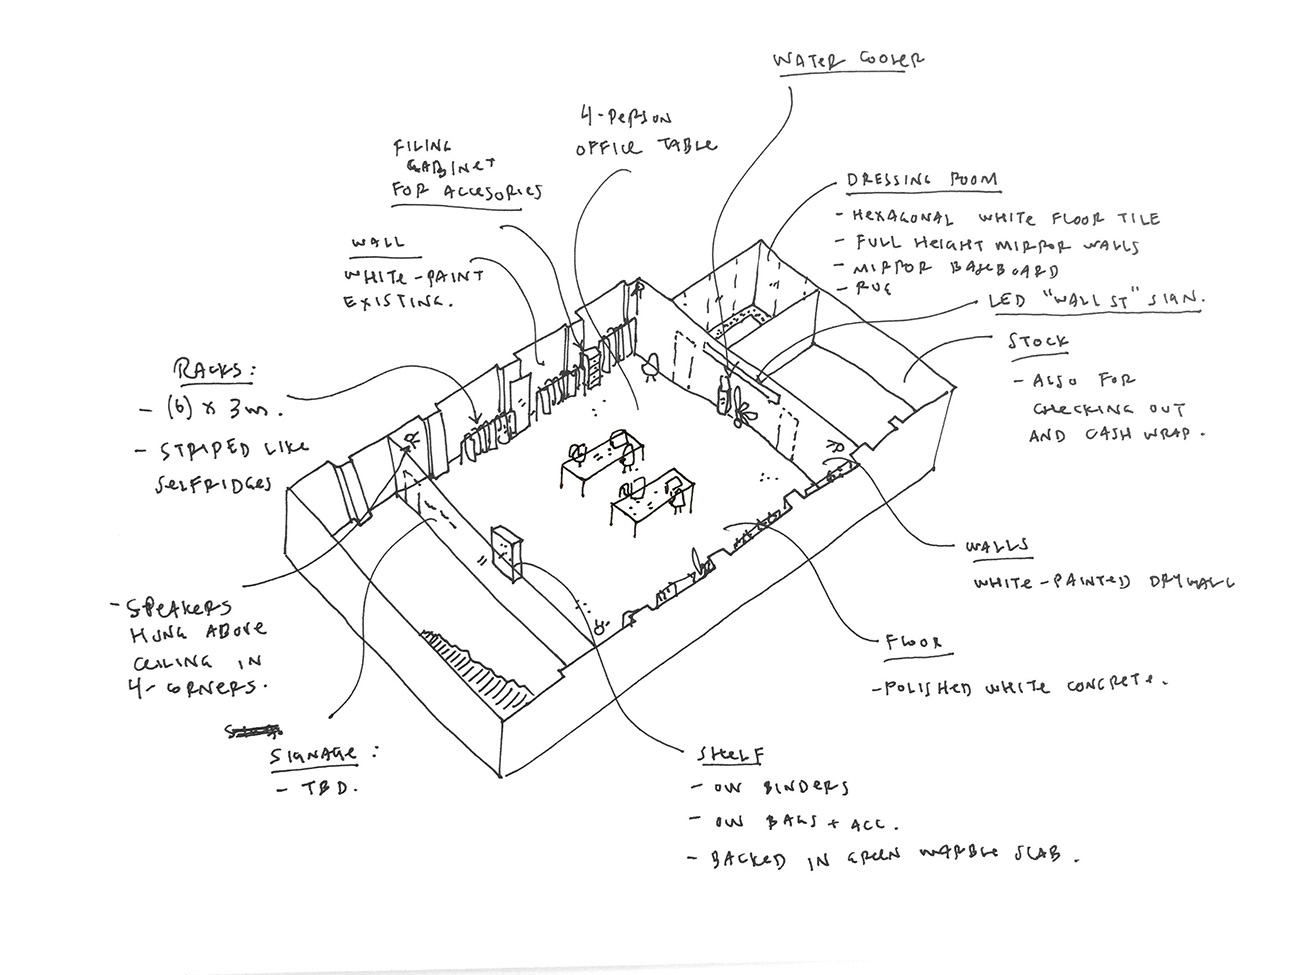 WATER COOLER
4-PERSON
OFFICE TABLE
FILING
CABINET
FOR ACCESORIES
WALL
WHITE-PAINT
EXISTING.
DRESSING ROOM
- HEXAGONAL WHITE FLOOR TILE
- FULL HEIGHT MIRROR WALLS
- MIRROR BASEBOARD
- RUG
LED "WALL ST" SIGN.
STOCK
- ALSO FOR
CHECKING OUT
AND CASH WRAP.
RACKS:
- (6) x 3m.
- STRIPED LIKE
SELFRIDGES
WALLS
WHITE-PAINTED DRYWALL
- SPEAKERS
HUNG ABOVE
CEILING IN
4-CORNERS.
FLOOR
- POLISHED WHITE CONCRETE.
SIGNAGE:
- TBD.
SHELF
- OW BINDERS
- OW BAGS + ACC.
- BACKED IN GREEN MARBLE SLAB.